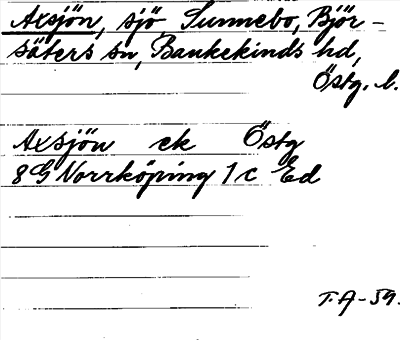 Axsjön, sjö, Sunnebo, Björ-
säters sn, Bankekinds hd,
Östg. l.
Axsjön ek Östg
8 G Norrköping 1 c Ed
T.A-59.